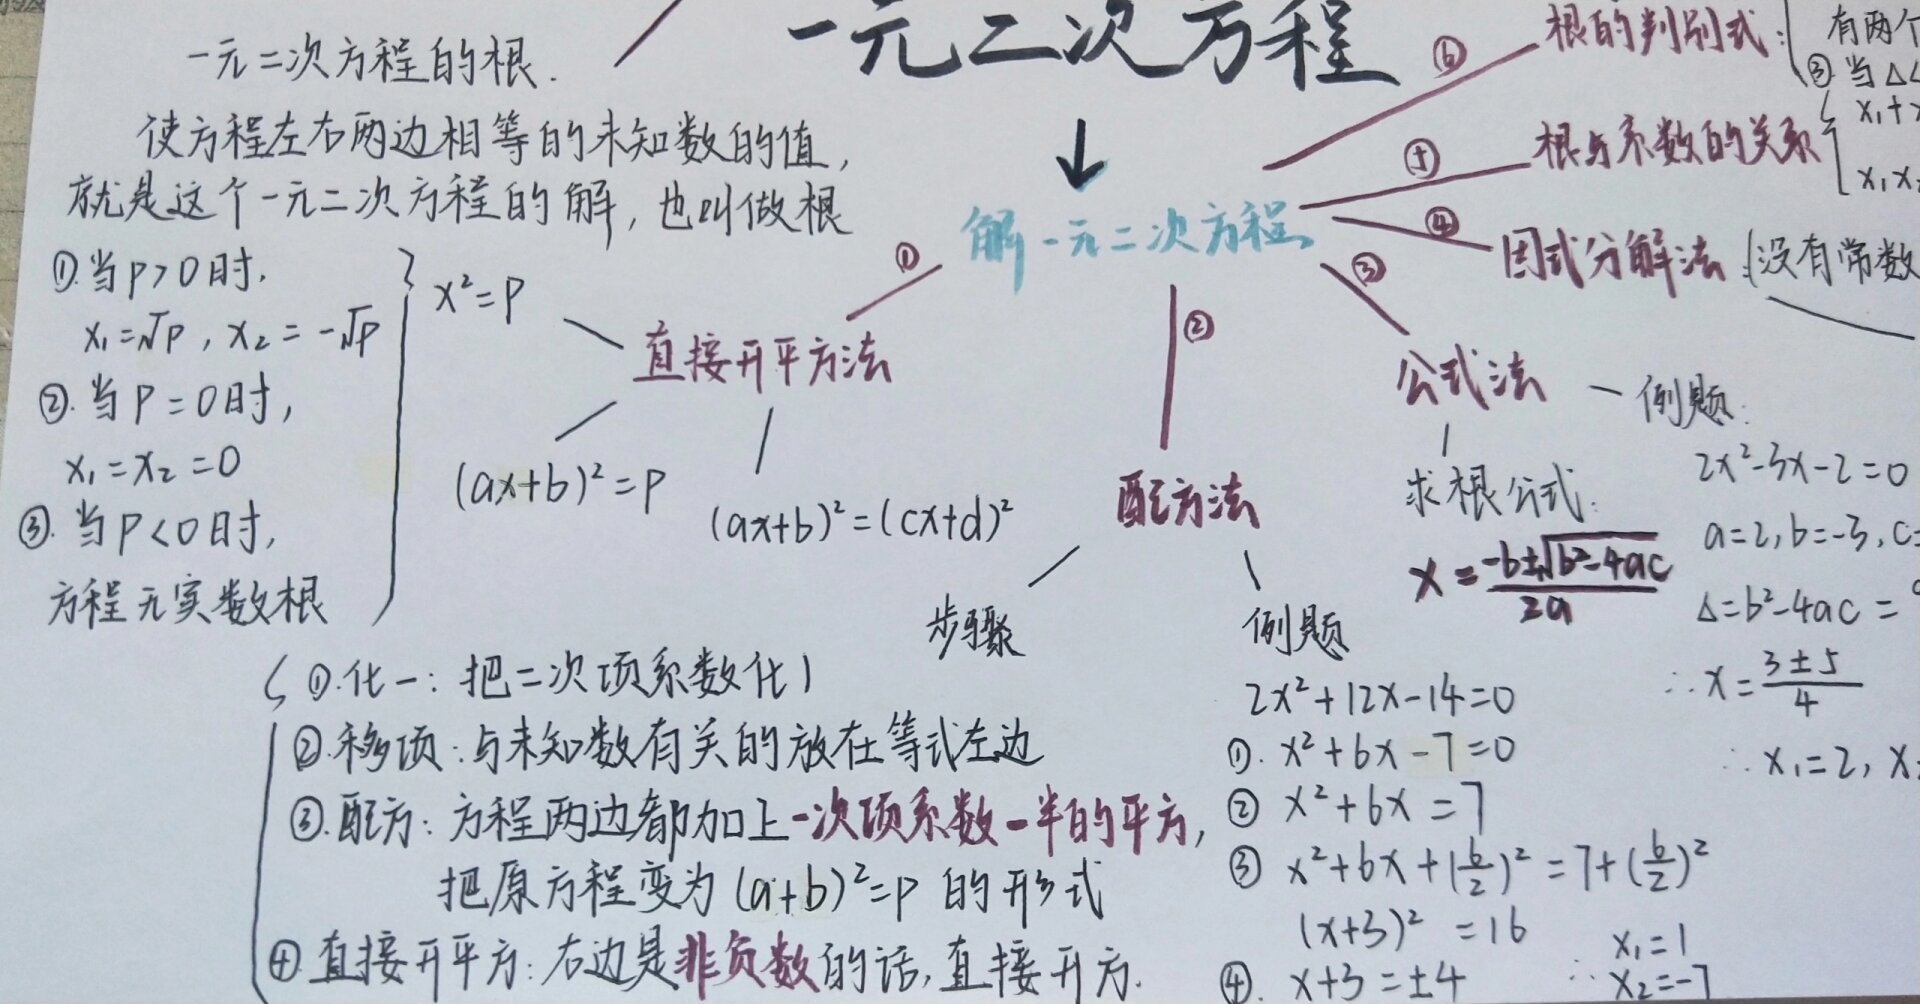 一元二次方程
一元二次方程的根.
使方程左右两边相等的未知数的值,
就是这个一元二次方程的解,也叫做根
①当P>0时.
x₁=√P, x₂=-√P
②.当P=0时,
x₁=x₂=0
③.当P<0时,
方程无实数根
x²=P
解一元二次方程
①
直接开平方法
(ax+b)²=P
(ax+b)²=(cx+d)²
②
配方法
步骤
①.化一:把二次项系数化1
②.移项:与未知数有关的放在等式左边
③.配方:方程两边都加上一次项系数一半的平方,
把原方程变为(a+b)²=P的形式
④直接开平方:右边是非负数的话,直接开方.
例题
2x²+12x-14=0
①. x²+6x-7=0
② x²+6x=7
③ x²+6x+(6/2)²=7+(6/2)²
(x+3)²=16
④. x+3=±4
∴ x₁=1
x₂=-7
③
公式法
求根公式:
x=(-b±√(b²-4ac))/2a
例题:
2x²-3x-2=0
a=2,b=-3,c=
Δ=b²-4ac=
∴x=(3±5)/4
∴x₁=2, x
④
因式分解法:
没有常数
⑤
根与系数的关系
x₁+x
x₁x₂
⑥
根的判别式:
有两个
③当Δ<